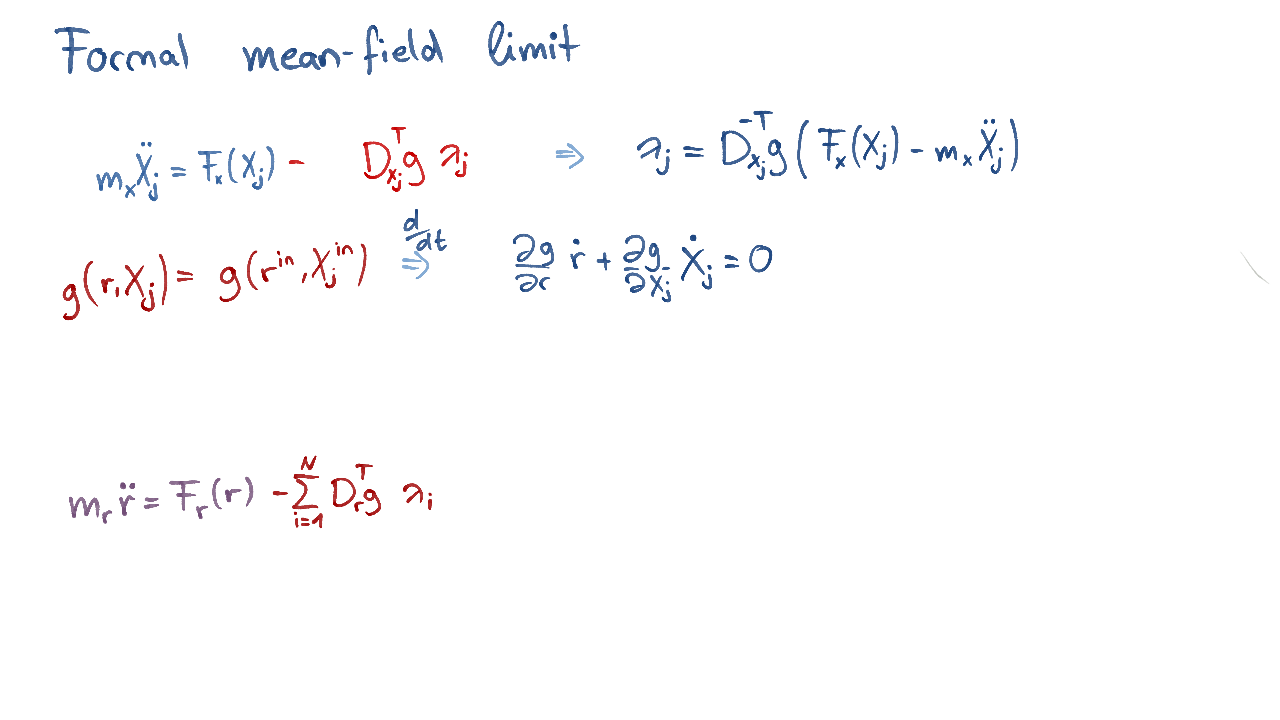 Formal mean-field limit
m_x Ẍ_j = F_x(X_j) - D_{x_j}^T g λ_j ⇒ λ_j = D_{x_j}^{-T} g (F_x(X_j) - m_x Ẍ_j)
g(r, X_j) = g(r^{in}, X_j^{in}) d/dt ⇒ ∂g/∂r ṙ + ∂g/∂X_j Ẋ_j = 0
m_r r̈ = F_r(r) - ∑_{i=1}^N D_r^T g λ_i